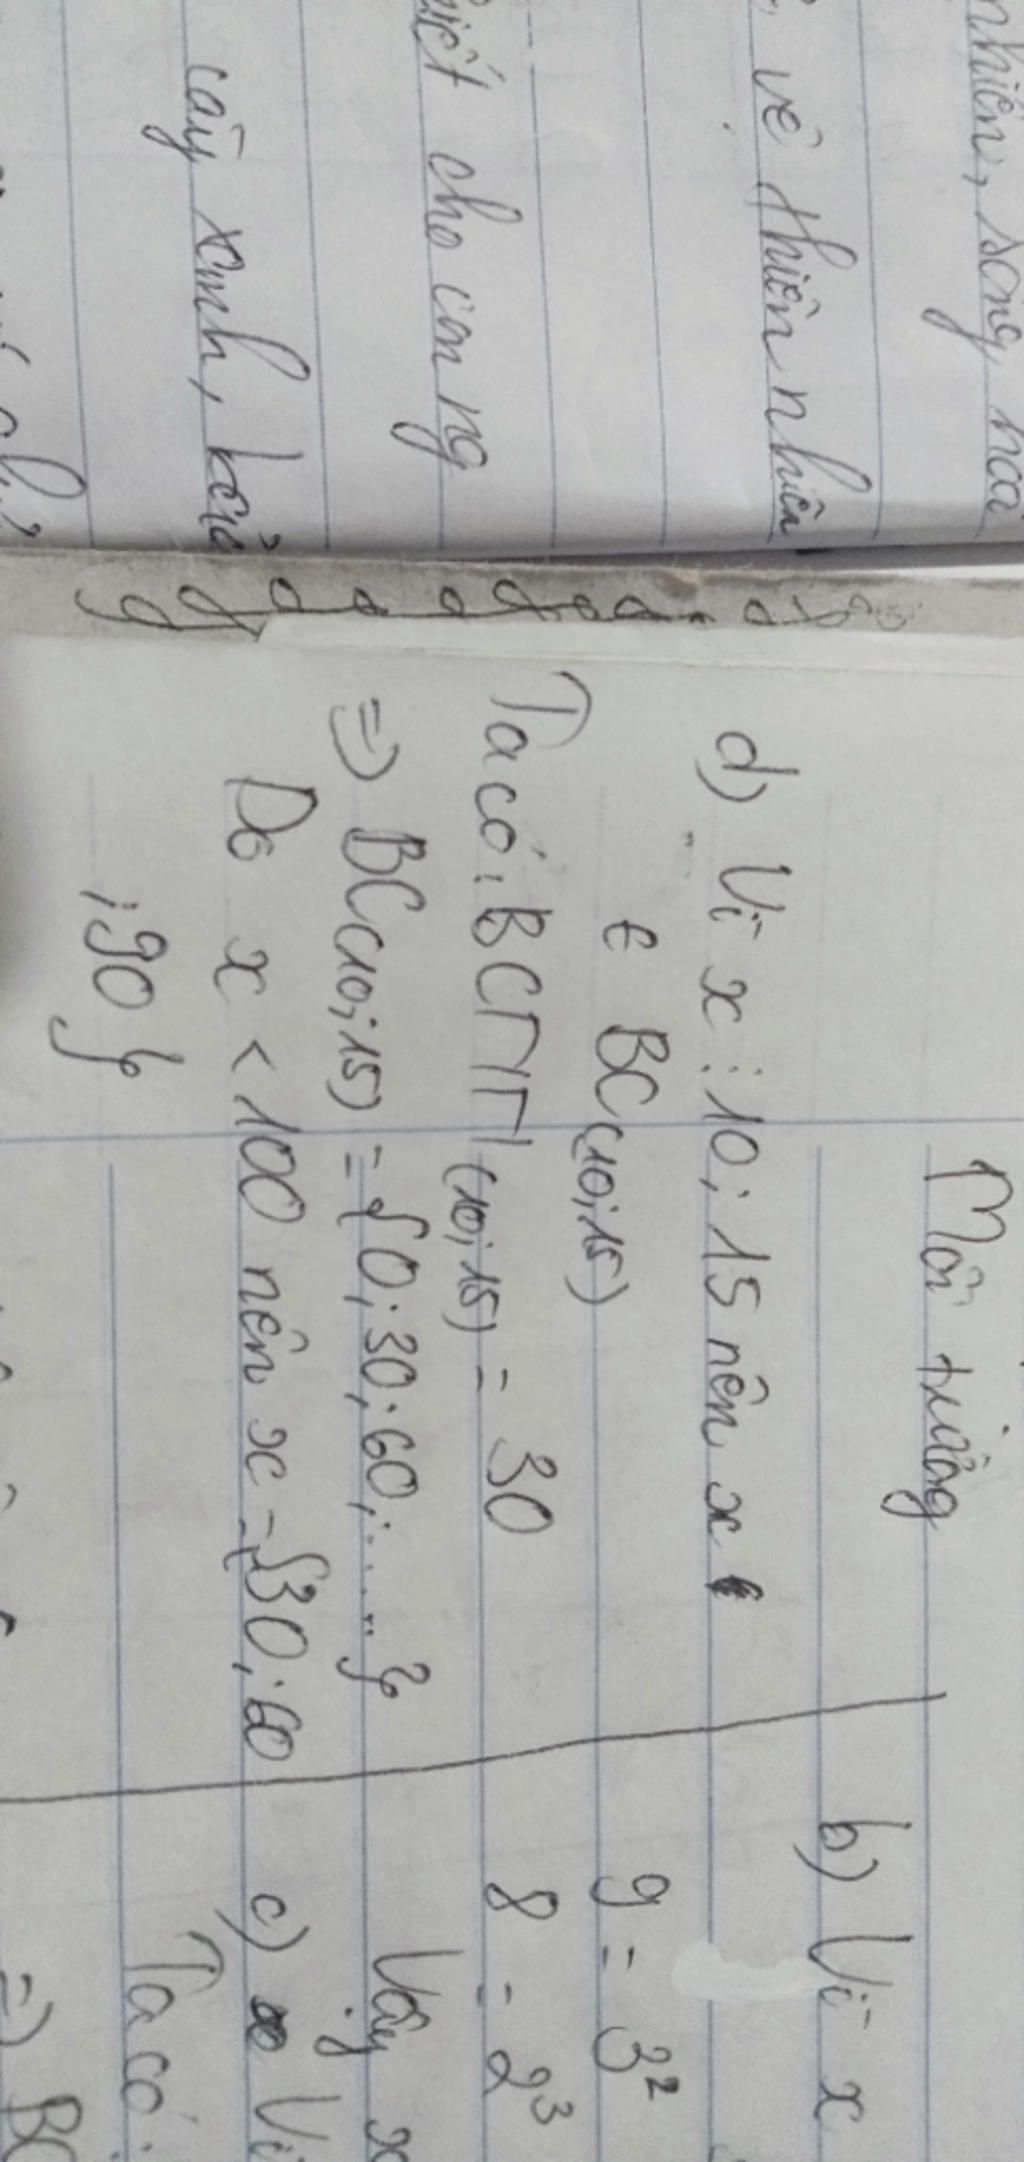 nhiên, sông
về thiên nhiên
cho con ng
cây xanh,
Môi trường
d) Vì x ⋮ 10; 15 nên x
∈ BC(10;15)
Ta có: BCNN(10;15) = 30
=> BC(10;15) = {0; 30; 60; .....}
Do x < 100 nên x = {30; 60
; 90}
b) Vì x
9 = 3²
8 = 2³
Vậy x
c) Vì
Ta có:
=> BC